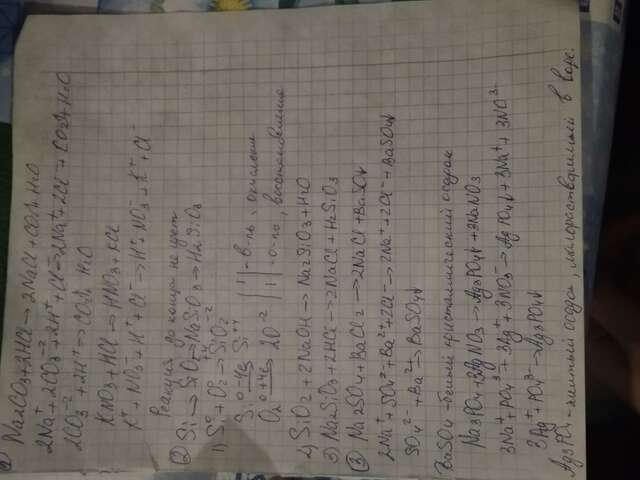 ① Na2CO3+2HCl→2NaCl+CO2↑+H2O
2Na⁺+2CO3⁻²+2H⁺+Cl⁻→2Na⁺+2Cl⁻+CO2↑+H2O
2CO3⁻²+2H⁺→CO2↑ H2O
KNO3+HCl→HNO3+KCl
K⁺+NO3⁻+H⁺+Cl⁻→H⁺+NO3⁻+K⁺+Cl⁻
Реакция до конца не идет
② Si→SiO2→NaSiO3→H2SiO3
1) Si⁰+O2⁰→Si⁺⁴O2⁻²
Si⁰ -4e Si⁺⁴ |1| в-ль, окисление
O2⁰ +4e 2O⁻² |1| о-ль, восстановление
2) SiO2+2NaOH→Na2SiO3+H2O
3) Na2SiO3+2HCl→2NaCl+H2SiO3
③ Na2SO4+BaCl2→2NaCl+BaSO4
2Na⁺+SO4²⁻+Ba²⁺+2Cl⁻→2Na⁺+2Cl⁻+BaSO4↓
SO4²⁻+Ba²⁻→BaSO4↓
BaSO4-белый кристаллический осадок
Na3PO4+3AgNO3→Ag3PO4↓+3NaNO3
3Na⁺+PO4³⁻+3Ag⁺+3NO3⁻→Ag3PO4↓+3Na⁺+3NO³⁻
3Ag⁺+PO4³⁻→Ag3PO4↓
Ag3PO4-желтый осадок, малорастворимый в воде.